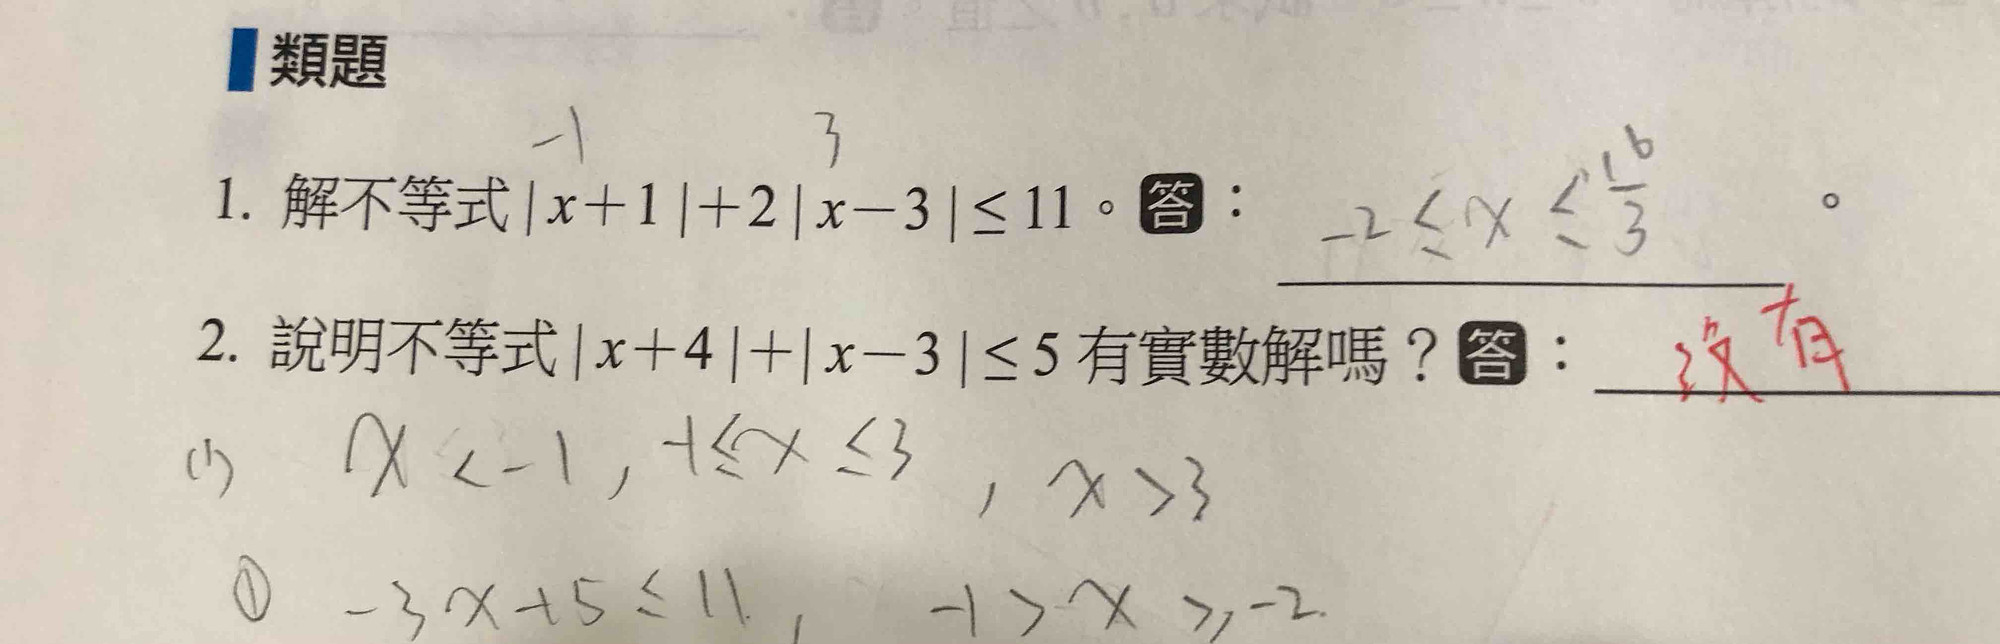 類題
-1 3
1. 解不等式|x+1|+2|x-3|≤11。答： -2≤x≤16/3 。
2. 說明不等式|x+4|+|x-3|≤5有實數解嗎？答： 沒有
(1) x<-1, -1≤x≤3, x>3
① -3x+5≤11, -1>x≥-2.